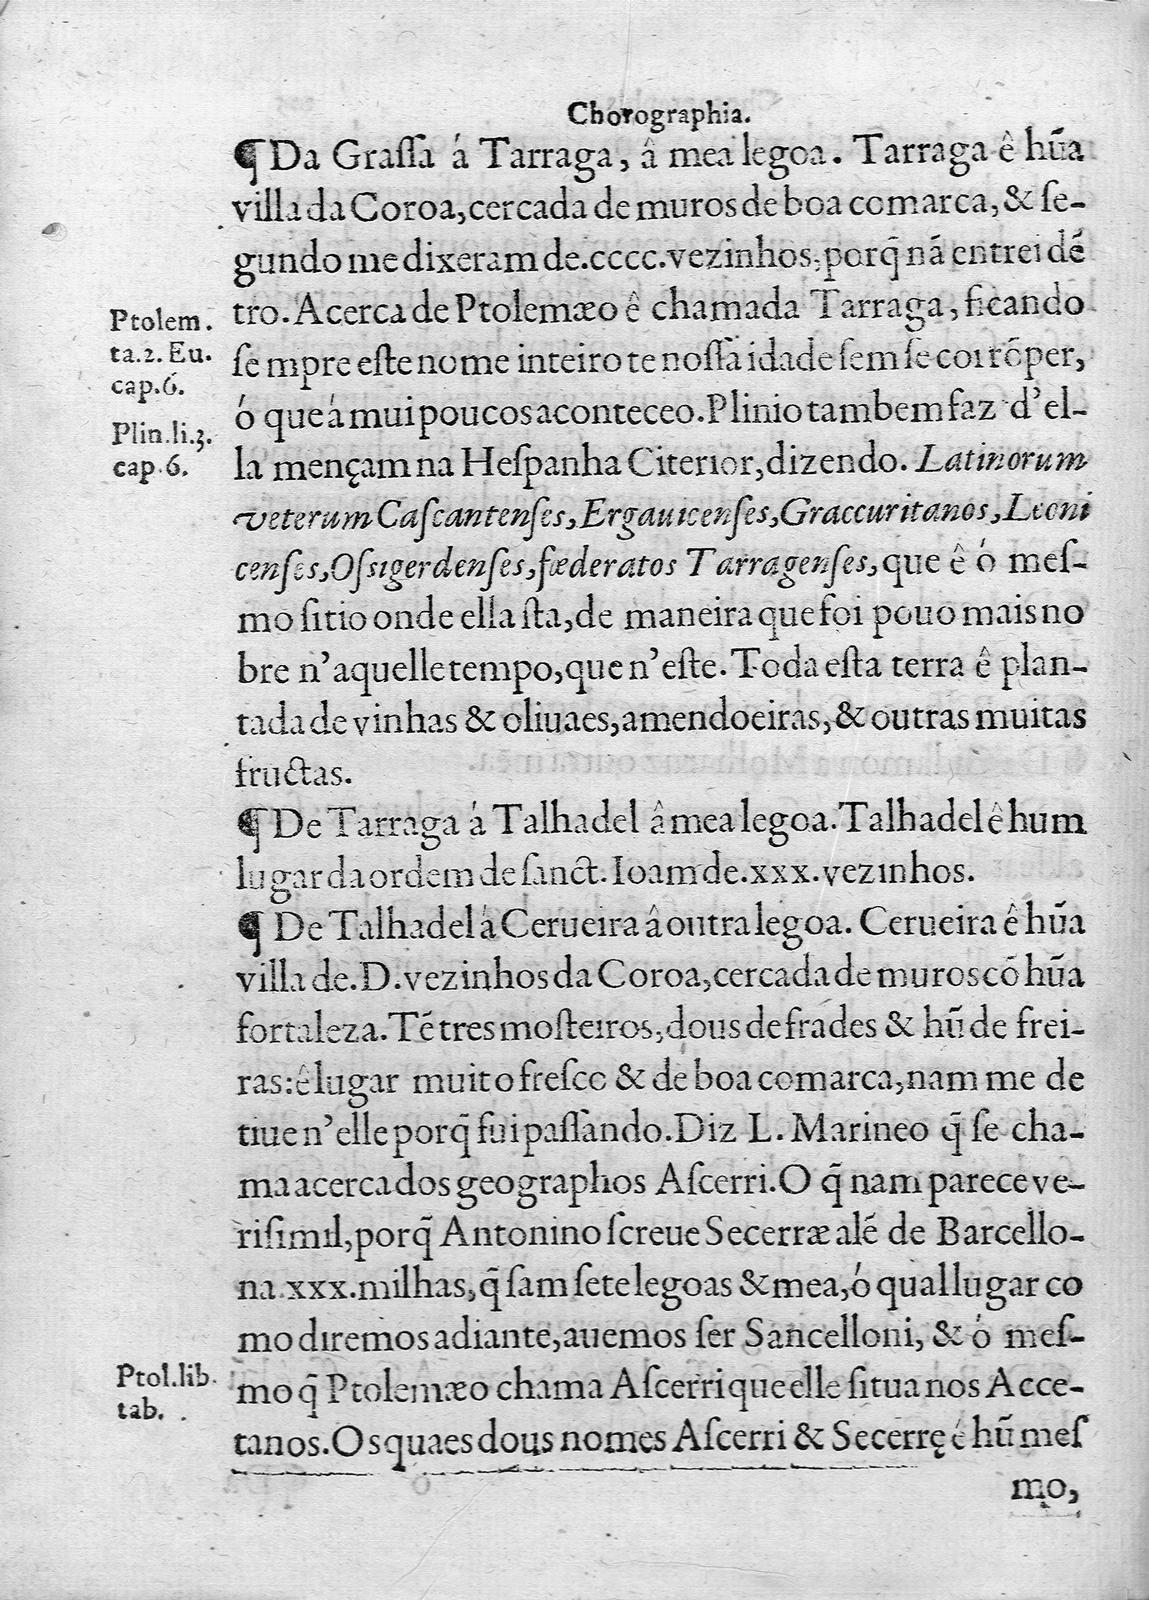 Chorographia.
¶ Da Graſſa á Tarraga, â mea legoa. Tarraga ê hũa
villa da Coroa, cercada de muros de boa comarca, & ſe-
gundo me dixeram de .cccc. vezinhos, porq̃ nã entrei dẽ
tro. Acerca de Ptolemæo ê chamada Tarraga, ficando
Ptolem.
ta.2. Eu.
cap.6.
ſempre eſte nome inteiro te noſſa idade ſem ſe corrõper,
ó que á mui poucos aconteceo. Plinio tambem faz d'el-
Plin.li.3.
cap.6.
la mençam na Heſpanha Citerior, dizendo. Latinorum
veterum Caſcantenſes, Ergauicenſes, Graccuritanos, Leoni
cenſes, Oſsigerdenſes, fœderatos Tarragenſes, que ê ó meſ-
mo ſitio onde ella ſta, de maneira que foi pouo mais no
bre n'aquelle tempo, que n'eſte. Toda eſta terra ê plan-
tada de vinhas & oliuaes, amendoeiras, & outras muitas
fructas.
¶ De Tarraga á Talhadel â mea legoa. Talhadel ê hum
lugar da ordem de ſanct. Ioam de .xxx. vezinhos.
¶ De Talhadel á Cerueira â outra legoa. Cerueira ê hũa
villa de .D. vezinhos da Coroa, cercada de muros cõ hũa
fortaleza. Tẽ tres moſteiros, dous de frades & hũ de frei-
ras: ê lugar muito freſco & de boa comarca, nam me de
tiue n'elle porq̃ fui paſſando. Diz L. Marineo q̃ ſe cha-
ma acerca dos geographos Aſcerri. O q̃ nam parece ve-
riſimil, porq̃ Antonino ſcreue Secerræ alẽ de Barcello-
na .xxx. milhas, q̃ ſam ſete legoas & mea, ó qual lugar co
mo diremos adiante, auemos ſer Sancelloni, & ó meſ-
Ptol.lib.
tab.
mo q̃ Ptolemæo chama Aſcerri que elle ſitua nos Acce-
tanos. Os quaes dous nomes Aſcerri & Secerrę é hũ meſ
mo,